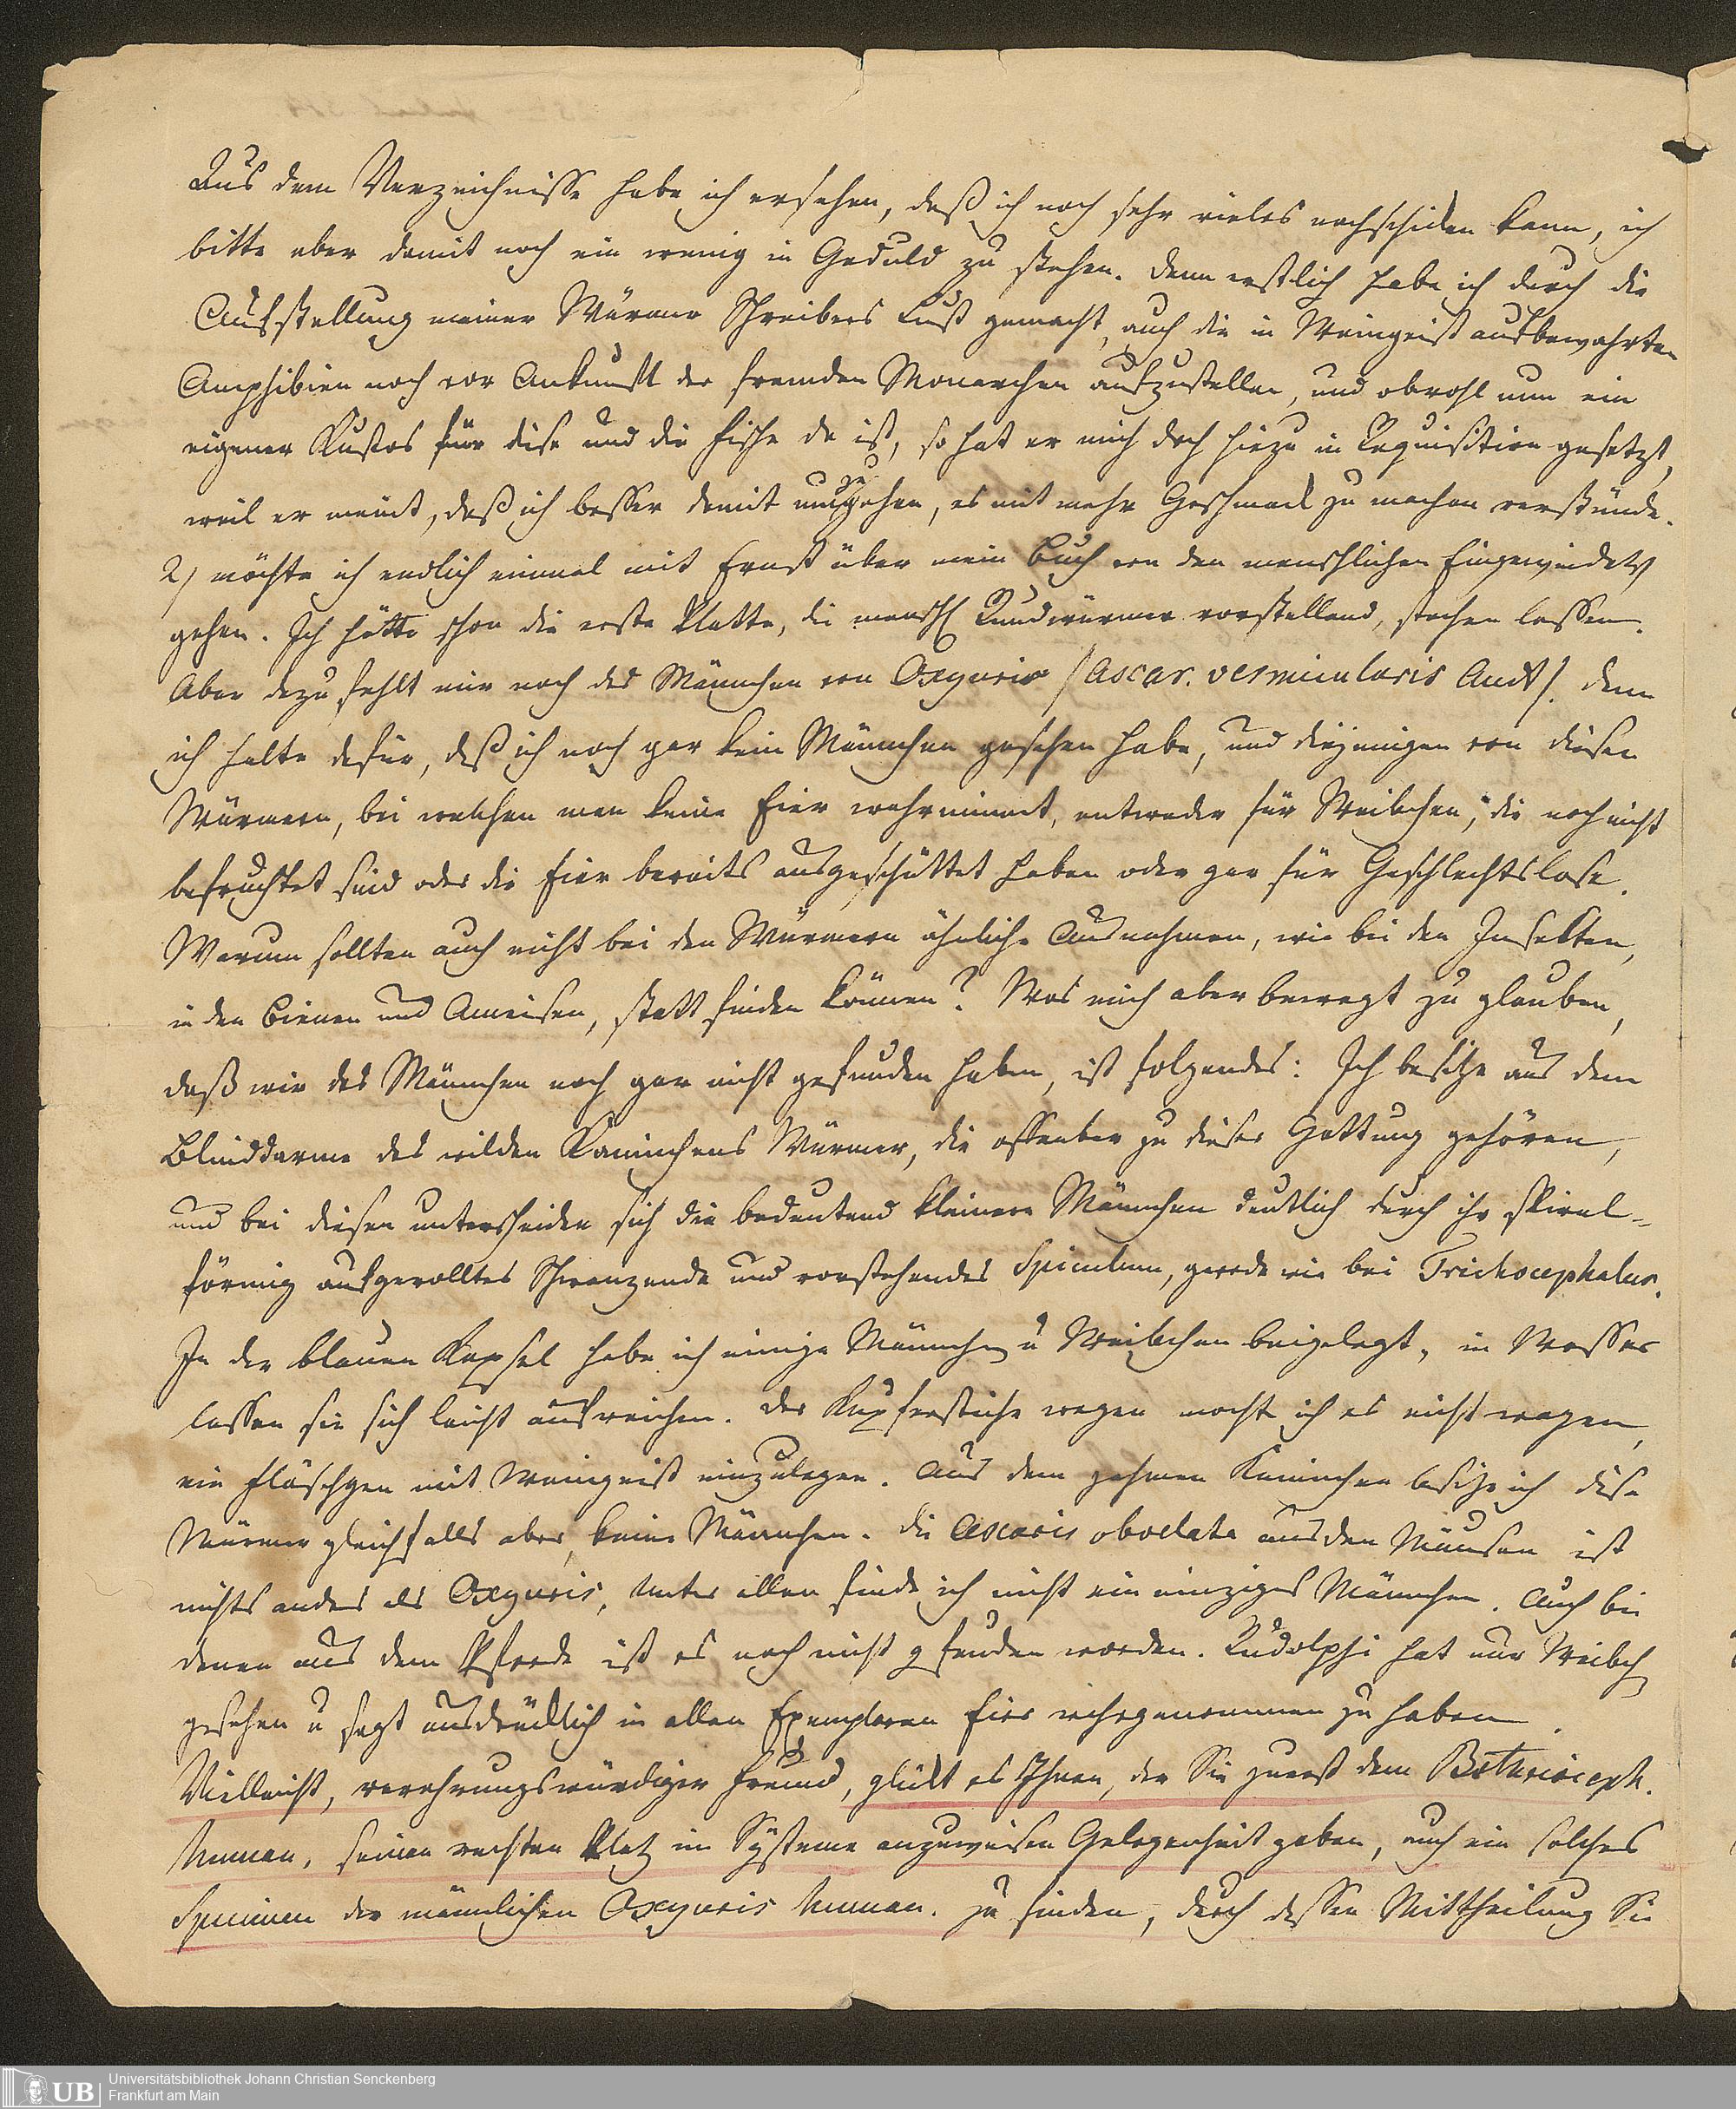 Aus dem Verzeichnisse habe ich ersehen, daß ich noch sehr vieles nachschicken kann, ich
bitte aber damit noch ein wenig in Geduld zu stehen. Denn erstlich habe ich durch die
Aufstellung meiner Würmer Schreibers Lust gemacht, auch die in Weingeist aufbewahrten
Amphibien noch vor Ankunft der fremden Monarchen aufzustellen, und obwohl nun ein
eigener Kustos für diese und die Fische da ist, so hat er mich doch hiezu in Requisition gesetzt,
weil er meint, daß ich besser damit umzugehen, es mit mehr Geschmack zu machen verstünde.
2) möchte ich endlich einmal mit Ernst über mein Buch von den menschlichen Eingeweidew
gehen. Ich hätte schon die erste Platte, die menschl Rundwürmer vorstellend, stechen lassen.
Aber dazu fehlt mir noch das Männchen von Oxyuris /Ascar. vermicularis Auct/. Denn
ich halte dafür, daß ich noch gar kein Männchen gesehen habe, und diejenigen von diesen
Würmern, bei welchen man keine Eier wahrnimmt, entweder für Weibchen, die noch nicht
befruchtet sind oder die Eier bereits ausgeschüttet haben oder gar für Geschlechtslose.
Warum sollten auch nicht bei den Würmern ähnliche Ausnahmen, wie bei den Insekten,
in den Bienen und Ameisen, statt finden können? Was mich aber bewegt zu glauben,
daß wir das Männchen noch gar nicht gefunden haben, ist folgendes: Ich besitze aus dem
Blinddarme des wilden Kaninchens Würmer, die offenbar zu dieser Gattung gehören,
und bei diesen unterscheiden sich die bedeutend kleinern Männchen deutlich durch ihr spiral-
förmig aufgerolltes Schwanzende und vorstehendes Spiculum, gerade wie bei Trichocephalus.
In der blauen Kapsel habe ich einige Männchen u Weibchen beigelegt, in Wasser
lassen sie sich leicht aufweichen. Der Kupferstiche wegen mocht ich es nicht wagen,
ein Fläschgen mit Weingeist einzulegen. Aus dem zahmen Kaninchen besitze ich diese
Würmer gleichfalls aber keine Männchen. Die Ascaris obvelata aus den Mäusen ist
nichts anders als Oxyuris, unter allen finde ich nicht ein einziges Männchen. Auch bei
denen aus dem Pferde ist es noch nicht gefunden worden. Rudolphi hat nur Weibch
gesehen u sagt ausdrücklich in allen Exemplaren Eier wahrgenommen zu haben.
Vielleicht, verehrungswürdiger Freund, glückt es Ihnen, der Sie zuerst dem Bothrioceph.
human. seinen rechten Platz im Systeme anzuweisen Gelegenheit gaben, auch ein solches
Specimen der männlichen Oxyuris human. zu finden, durch dessen Mittheilung Sie
Universitätsbibliothek Johann Christian Senckenberg
Frankfurt am Main
UB